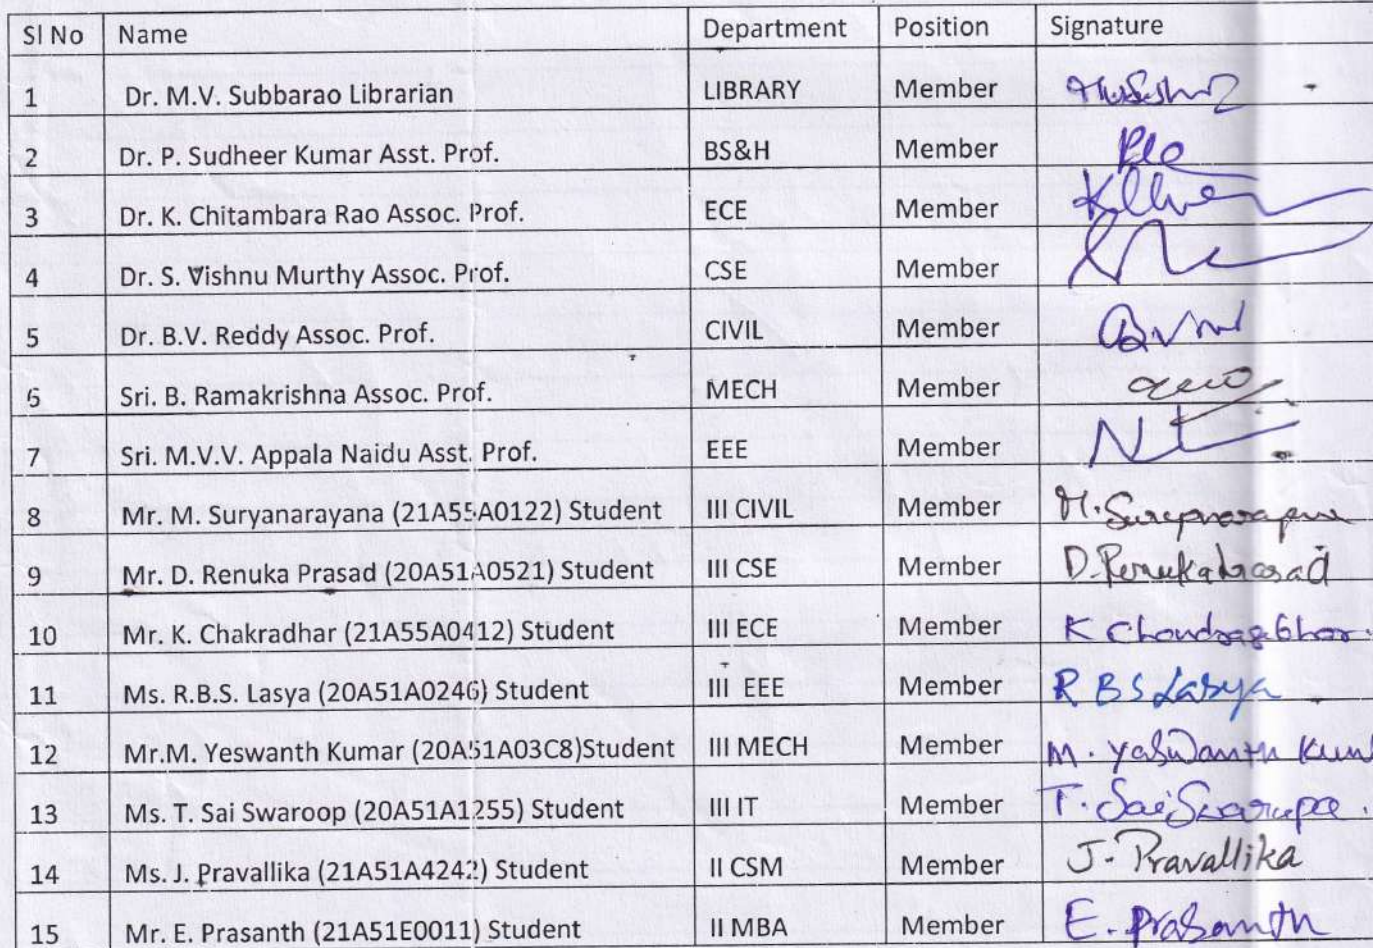 Sl No Name Department Position Signature
1 Dr. M.V. Subbarao Librarian LIBRARY Member
2 Dr. P. Sudheer Kumar Asst. Prof. BS&H Member
3 Dr. K. Chitambara Rao Assoc. Prof. ECE Member
4 Dr. S. Vishnu Murthy Assoc. Prof. CSE Member
5 Dr. B.V. Reddy Assoc. Prof. CIVIL Member
6 Sri. B. Ramakrishna Assoc. Prof. MECH Member
7 Sri. M.V.V. Appala Naidu Asst. Prof. EEE Member
8 Mr. M. Suryanarayana (21A55A0122) Student III CIVIL Member M.
9 Mr. D. Renuka Prasad (20A51A0521) Student III CSE Member D. Renukaprasad
10 Mr. K. Chakradhar (21A55A0412) Student III ECE Member K
11 Ms. R.B.S. Lasya (20A51A0246) Student III EEE Member R B S Lasya
12 Mr.M. Yeswanth Kumar (20A51A03C8)Student III MECH Member M. Yaswanth Kum
13 Ms. T. Sai Swaroop (20A51A1255) Student III IT Member T. Sai Swarupa.
14 Ms. J. Pravallika (21A51A4242) Student II CSM Member J. Pravallika
15 Mr. E. Prasanth (21A51E0011) Student II MBA Member E. Prasanth